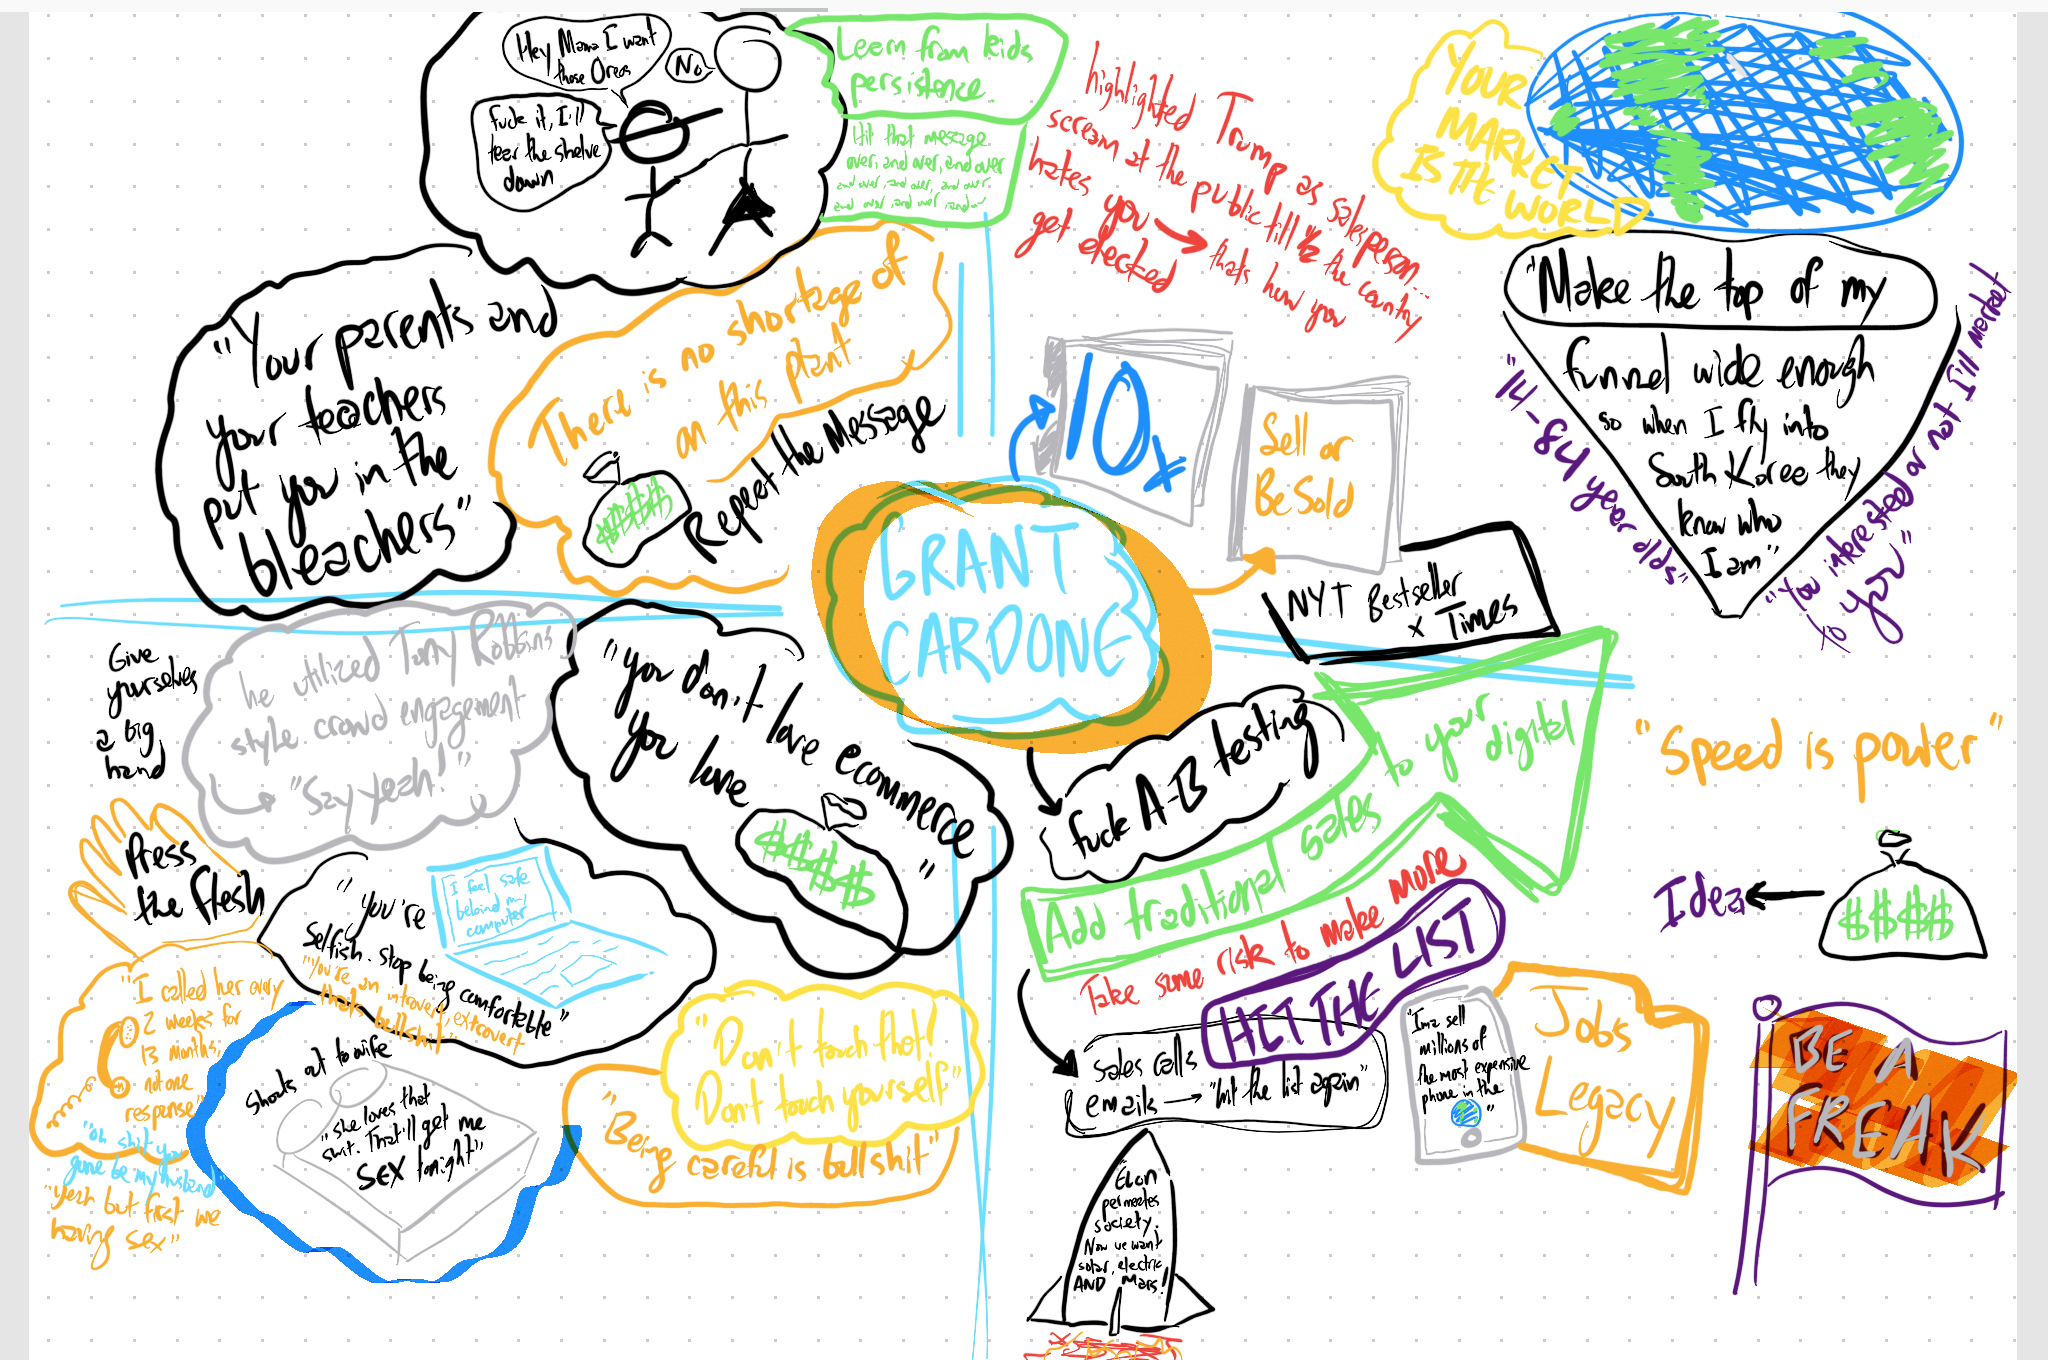 Hey Mama I want
those Oreos
No
Fuck it, I'll
tear the shelve
down
Learn from kids
persistence.
Hit that message
over, and over, and over
and over, and over, and over,
and over, and over, and
highlighted Trump as salesperson...
scream at the public till the country
hates you → thats how you
get elected
YOUR
MARKET
IS THE WORLD
"Make the top of my
funnel wide enough
so when I fly into
South Korea they
know who
I am"
"14-84 year olds"
"You interested or not I'll market
to you"
"Your parents and
your teachers
put you in the
bleachers"
There is no shortage of
on this plant
$$$$
Repeat the Message
10x
Sell or
Be Sold
NYT Bestseller
x Times
GRANT
CARDONE
Give
yourselves
a big
hand
he utilized Tony Robbins
style crowd engagement
"Say yeah!"
"you don't love ecommerce
you love
$$$$
"
fuck A-B testing
Add traditional sales
to your
digital
"Speed is power"
Press
the flesh
"you're
selfish. stop being comfortable"
I feel safe
behind my
computer
"You're an introvert, extrovert
thats bullshit"
Take some risk to make MORE
HIT THE LIST
Idea ← $$$$
"I called her every
2 weeks for
13 months,
not one
response"
"oh shit you
gone be my husband"
"yeah but first we
having sex"
Shouts out to wife
"she loves that
shit. That'll get me
SEX tonight"
"Don't touch that!
Don't touch yourself"
"Being careful is bullshit"
Sales calls
emails → "hit the list again"
"Ima sell
millions of
the most expensive
phone in the
"
Jobs
Legacy
BE A
FREAK
Elon
permeates
society.
Now we want
solar, electric
AND Mars!